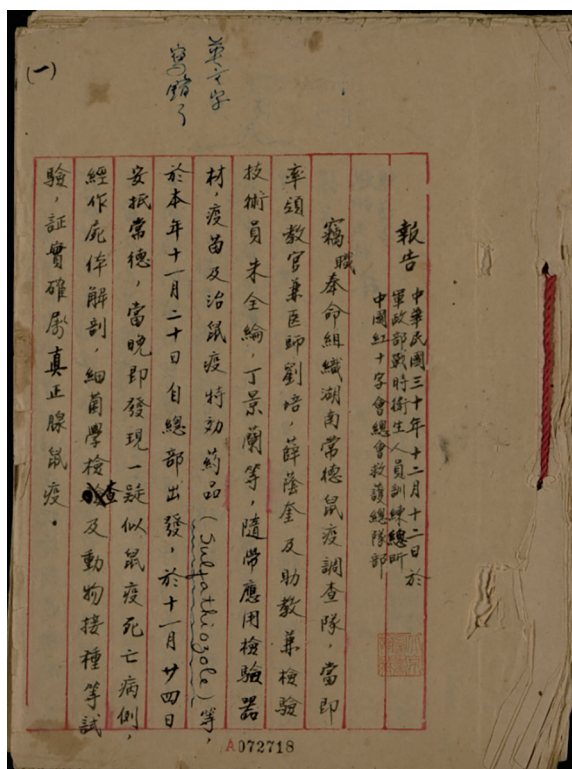 (一)
英文字
寫錯了
報告 中華民國三十年十二月十二日於
軍政部戰時衛生人員訓練總所
中國紅十字會總會救護總隊部
竊職奉命組織湖南常德鼠疫調查隊，當即
率領教官兼医師劉培，薛蔭奎及助教兼檢驗
技術員朱全綸，丁景蘭等，隨帶應用檢驗器
材，疫苗及治鼠疫特効葯品(Sulfathiozole)等，
於本年十一月二十日自總部出發，於十一月廿四日
安抵常德，當晚即發現一疑似鼠疫死亡病例，
經作屍体解剖，細菌學檢查及動物接種等試
驗，証實確屬真正腺鼠疫．
A072718